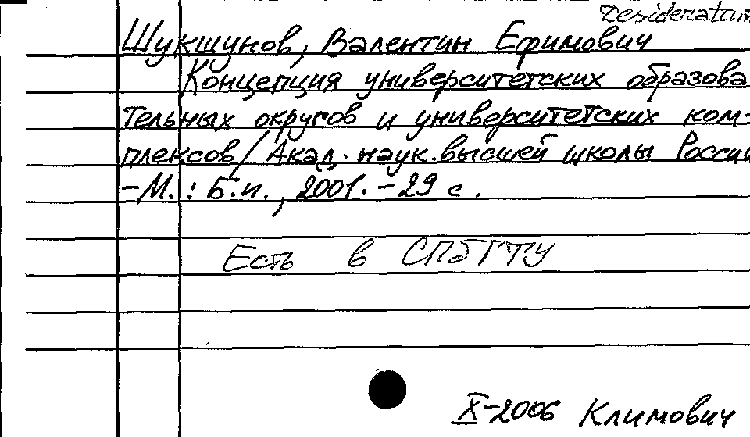 Desideratum
Шукшунов, Валентин Ефимович
Концепция университетских образова
тельных округов и университетских ком-
плексов/ Акад. наук высшей школы России
-М.: Б.и., 2001. - 29 с.
Есть в СПбГТУ
X-2006 Климович